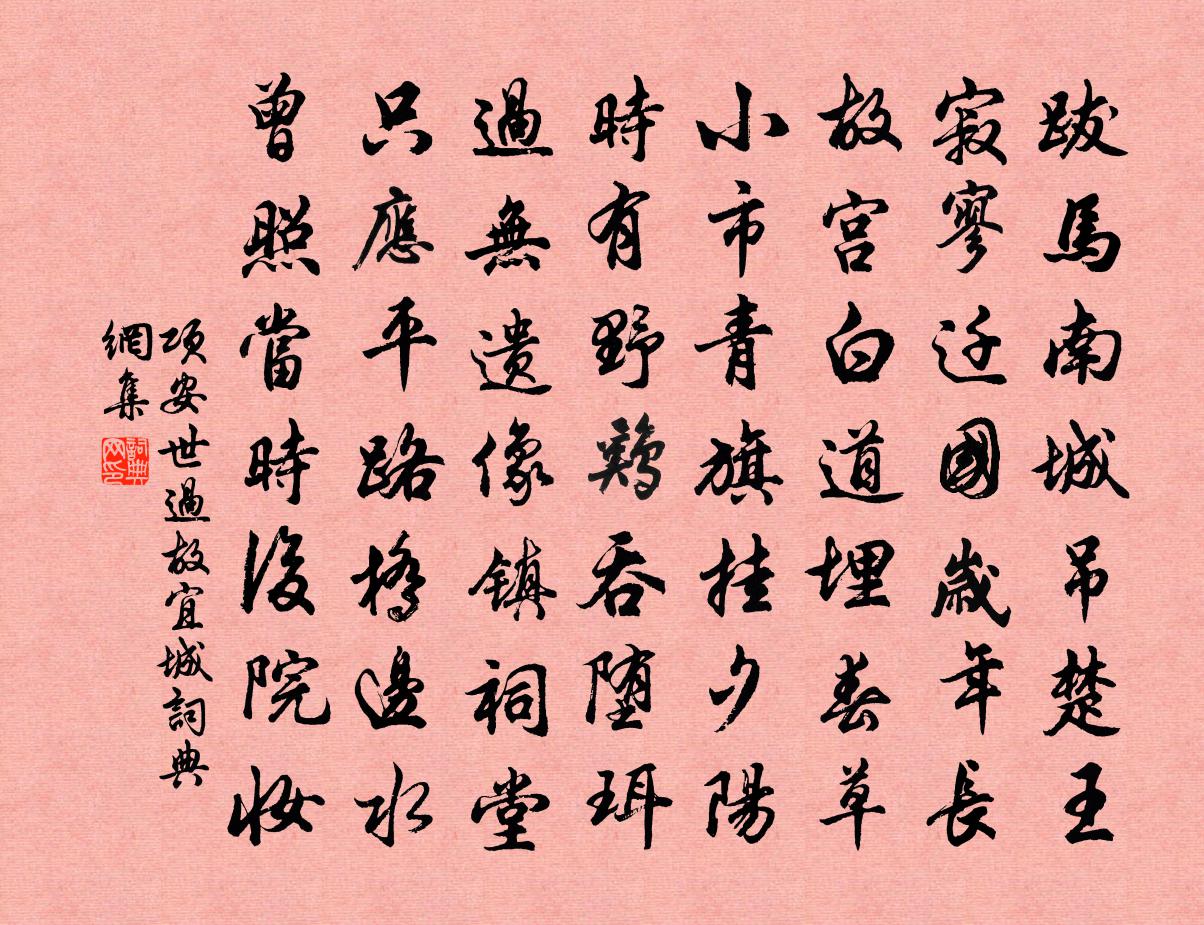 跋馬南城吊楚王
寂寥迁國歲年長
故宫白道埋春草
小市青旗挂夕陽
時有野鷄吞堕珥
過無遗像镇祠堂
只應平路橋邊水
曾照當時後院妝
項安世過故宜城詞典
網集
詞典網印